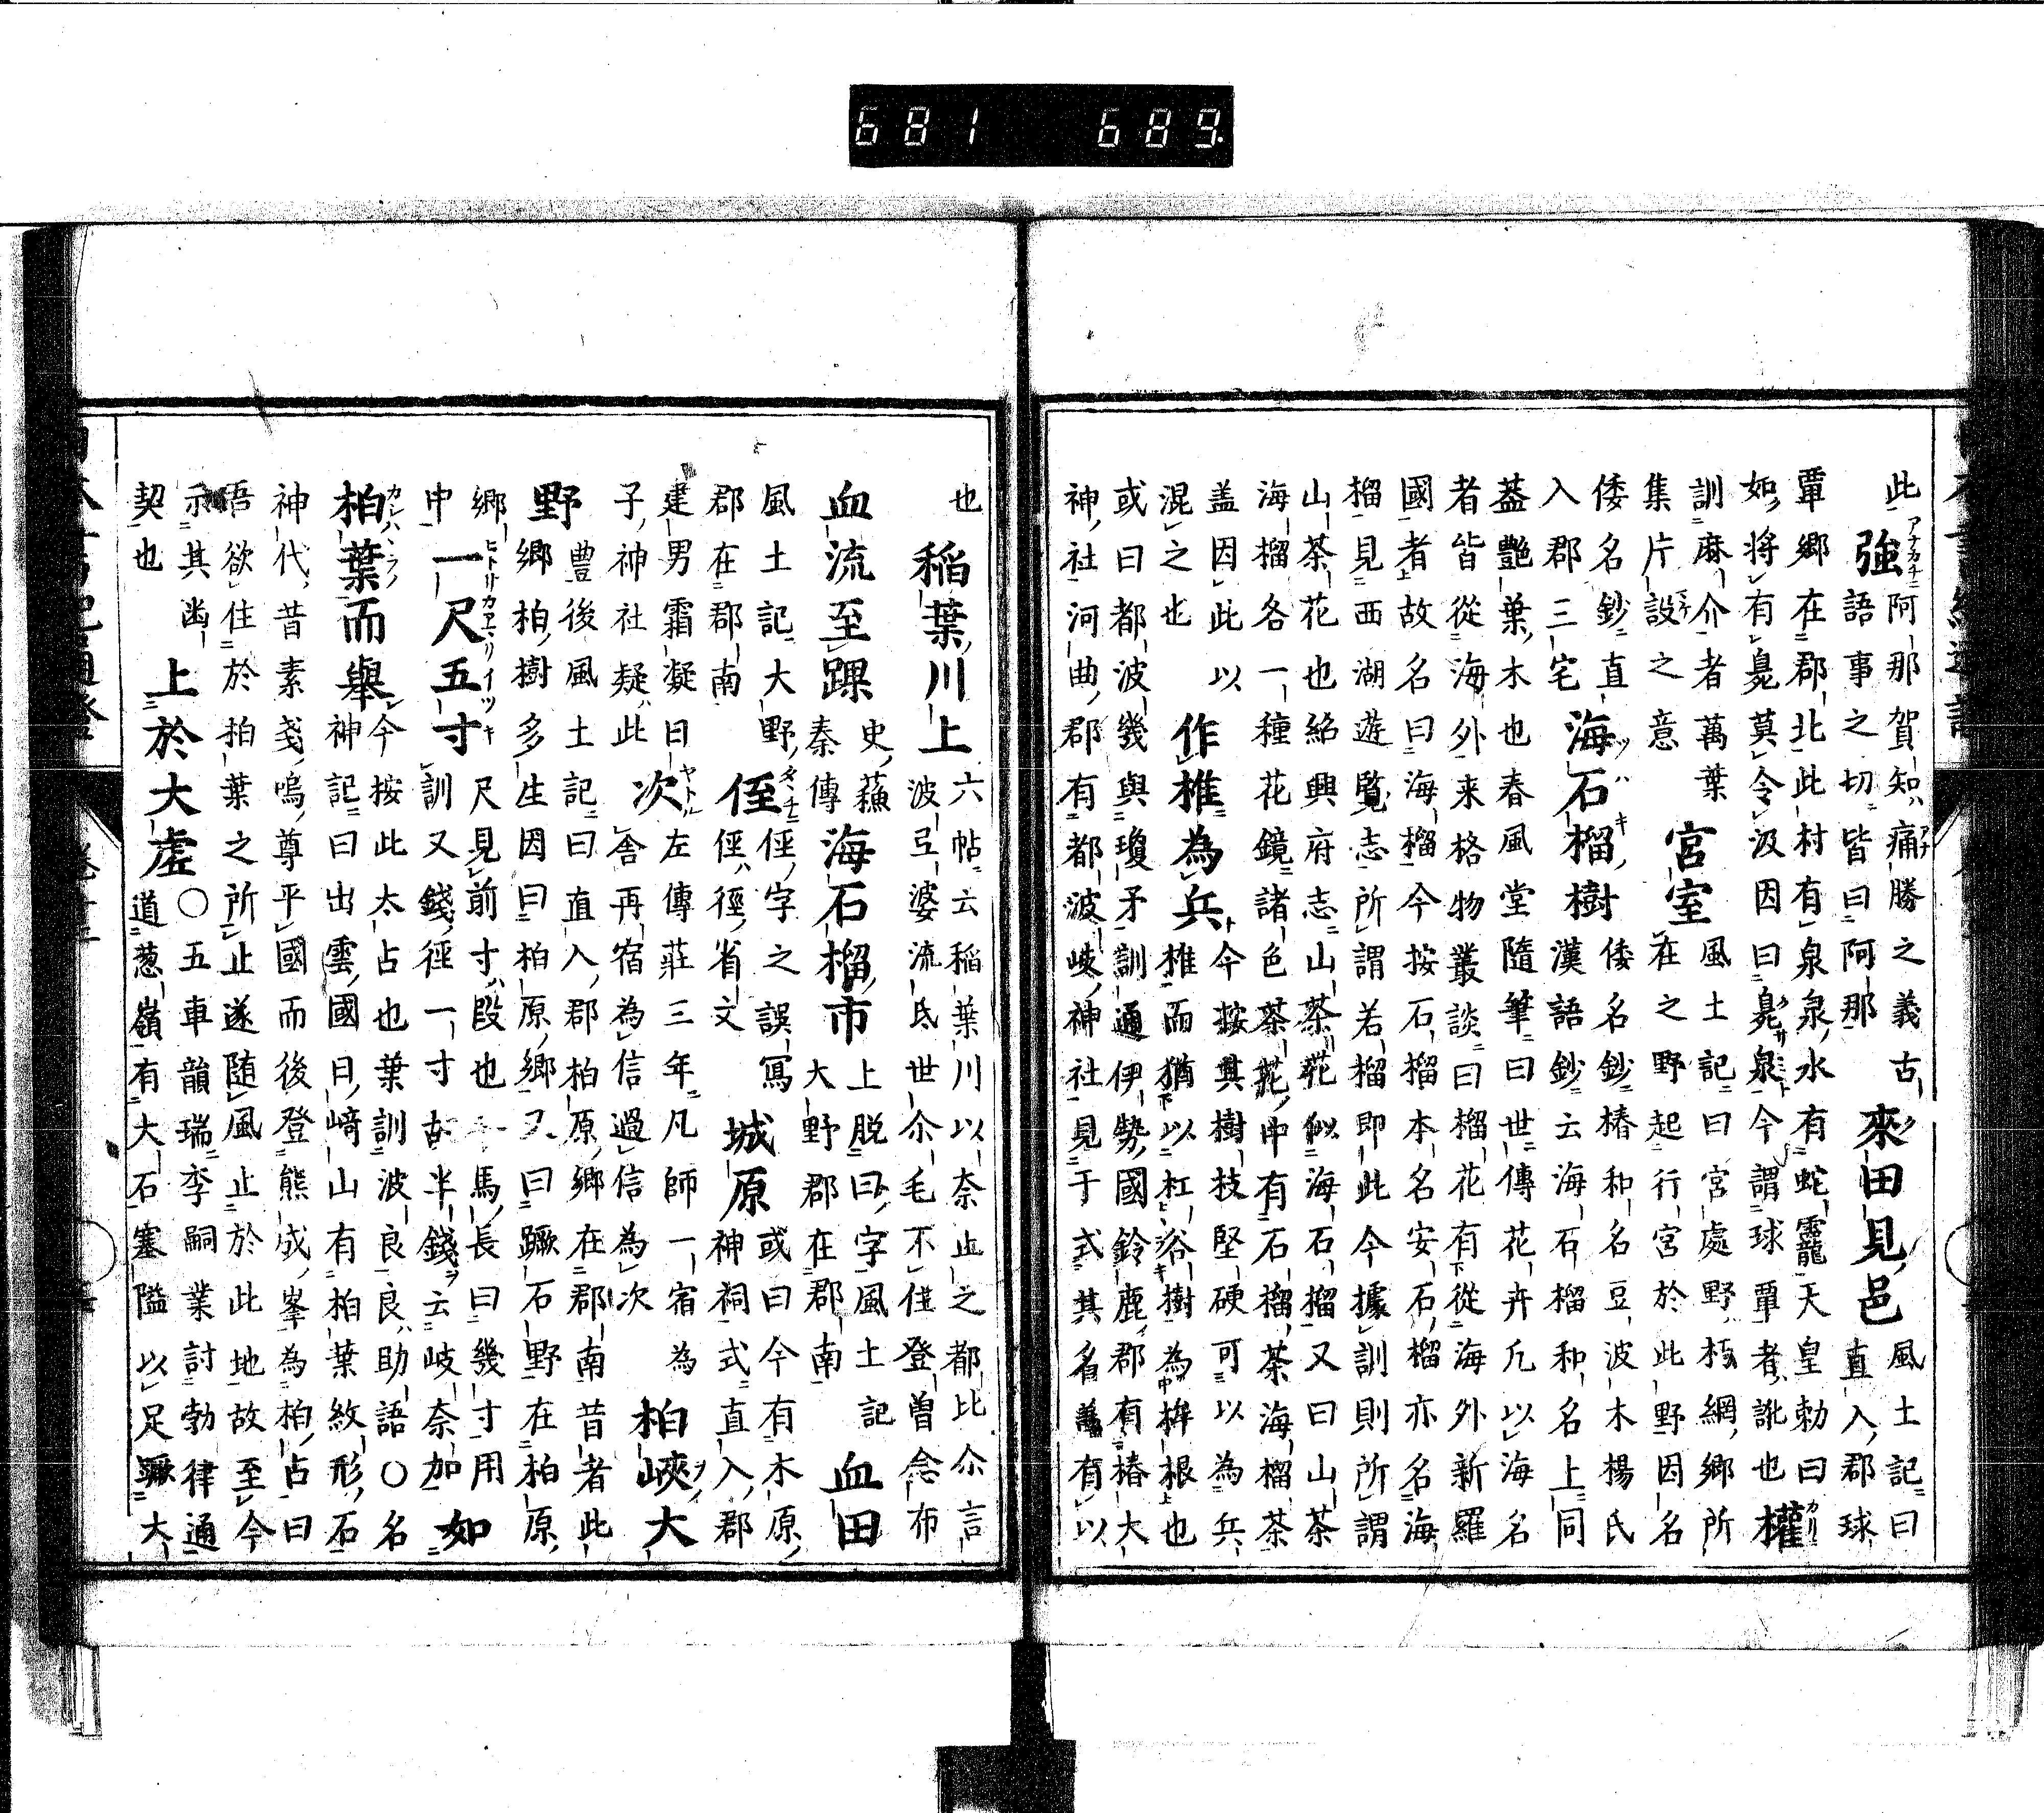 681 689
此 強 阿那賀知痛勝之義古
語事之切皆曰阿那 來田見邑 風土記曰
直入郡球
覃鄉在郡北此村有泉泉水有蛇龗天皇勅曰
如將有臭莫令汲因曰臭泉今謂球覃者訛也 權
訓麻介者萬葉
集片設之意 宮室 風土記曰宮處野朽網鄉所
在之野起行宮於此野因名
倭名鈔直
入郡三宅 海石榴樹 倭名鈔椿和名豆波木楊氏
漢語鈔云海石榴和名上同
葢艷葉木也春風堂隨筆曰世傳花卉凢以海名
者皆從海外来格物叢談曰榴花有從海外新羅
國者故名曰海榴今按石榴本名安石榴亦名海
榴見西湖遊覧志所謂若榴即此今據訓則所謂
山茶花也紹興府志山茶花似海石榴又曰山茶
海榴各一種花鏡諸色茶花中有石榴茶海榴茶
盖因此以
混之也 作椎為兵 今按其樹枝堅硬可以為兵
椎而猶以杠谷樹為桙根也
或曰都波幾與瓊矛訓通伊勢國鈴鹿郡有椿大
神社河曲郡有都波岐神社見于式其名義有以
也 稲葉川上 六帖云稲葉川以奈止之都比尒言
波弖婆流氐世尒毛不侳登曽念布
血流至踝 史蘓
秦傳 海石榴市 上脱曰字風土記
大野郡在郡南 血田
風土記大野
郡在郡南 侄 俓字之誤寫
俓徑省文 城原 或曰今有木原
神祠式直入郡
建男霜凝日
子神社疑此 次 左傳莊三年凡師一宿為
舍再宿為信過信為次 柏峽大
野 豊後風土記曰直入郡柏原鄉在郡南昔者此
鄉柏樹多生因曰柏原鄉又曰蹶石野在柏原
鄉
中 一尺五寸 尺見前寸段也馬長曰幾寸用
訓又錢徑一寸故半錢云岐奈加 如
柏葉而舉 今按此太占也葉訓波良良助語○名
神記曰出雲國日﨑山有柏葉紋形石
神代昔素戔嗚尊平國而後登熊成峯為柏占曰
吾欲住於柏葉之所止遂随風止於此地故至今
示其凾
契也 上於大虚 ○五車韻瑞李嗣業討勃律通
道葱嶺有大石塞隘以足蹶大